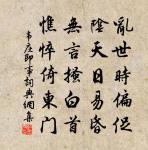 亂世時偏促
陰天日易昏
無言搔白首
憔悴倚東門
韦庄即事詞典網集